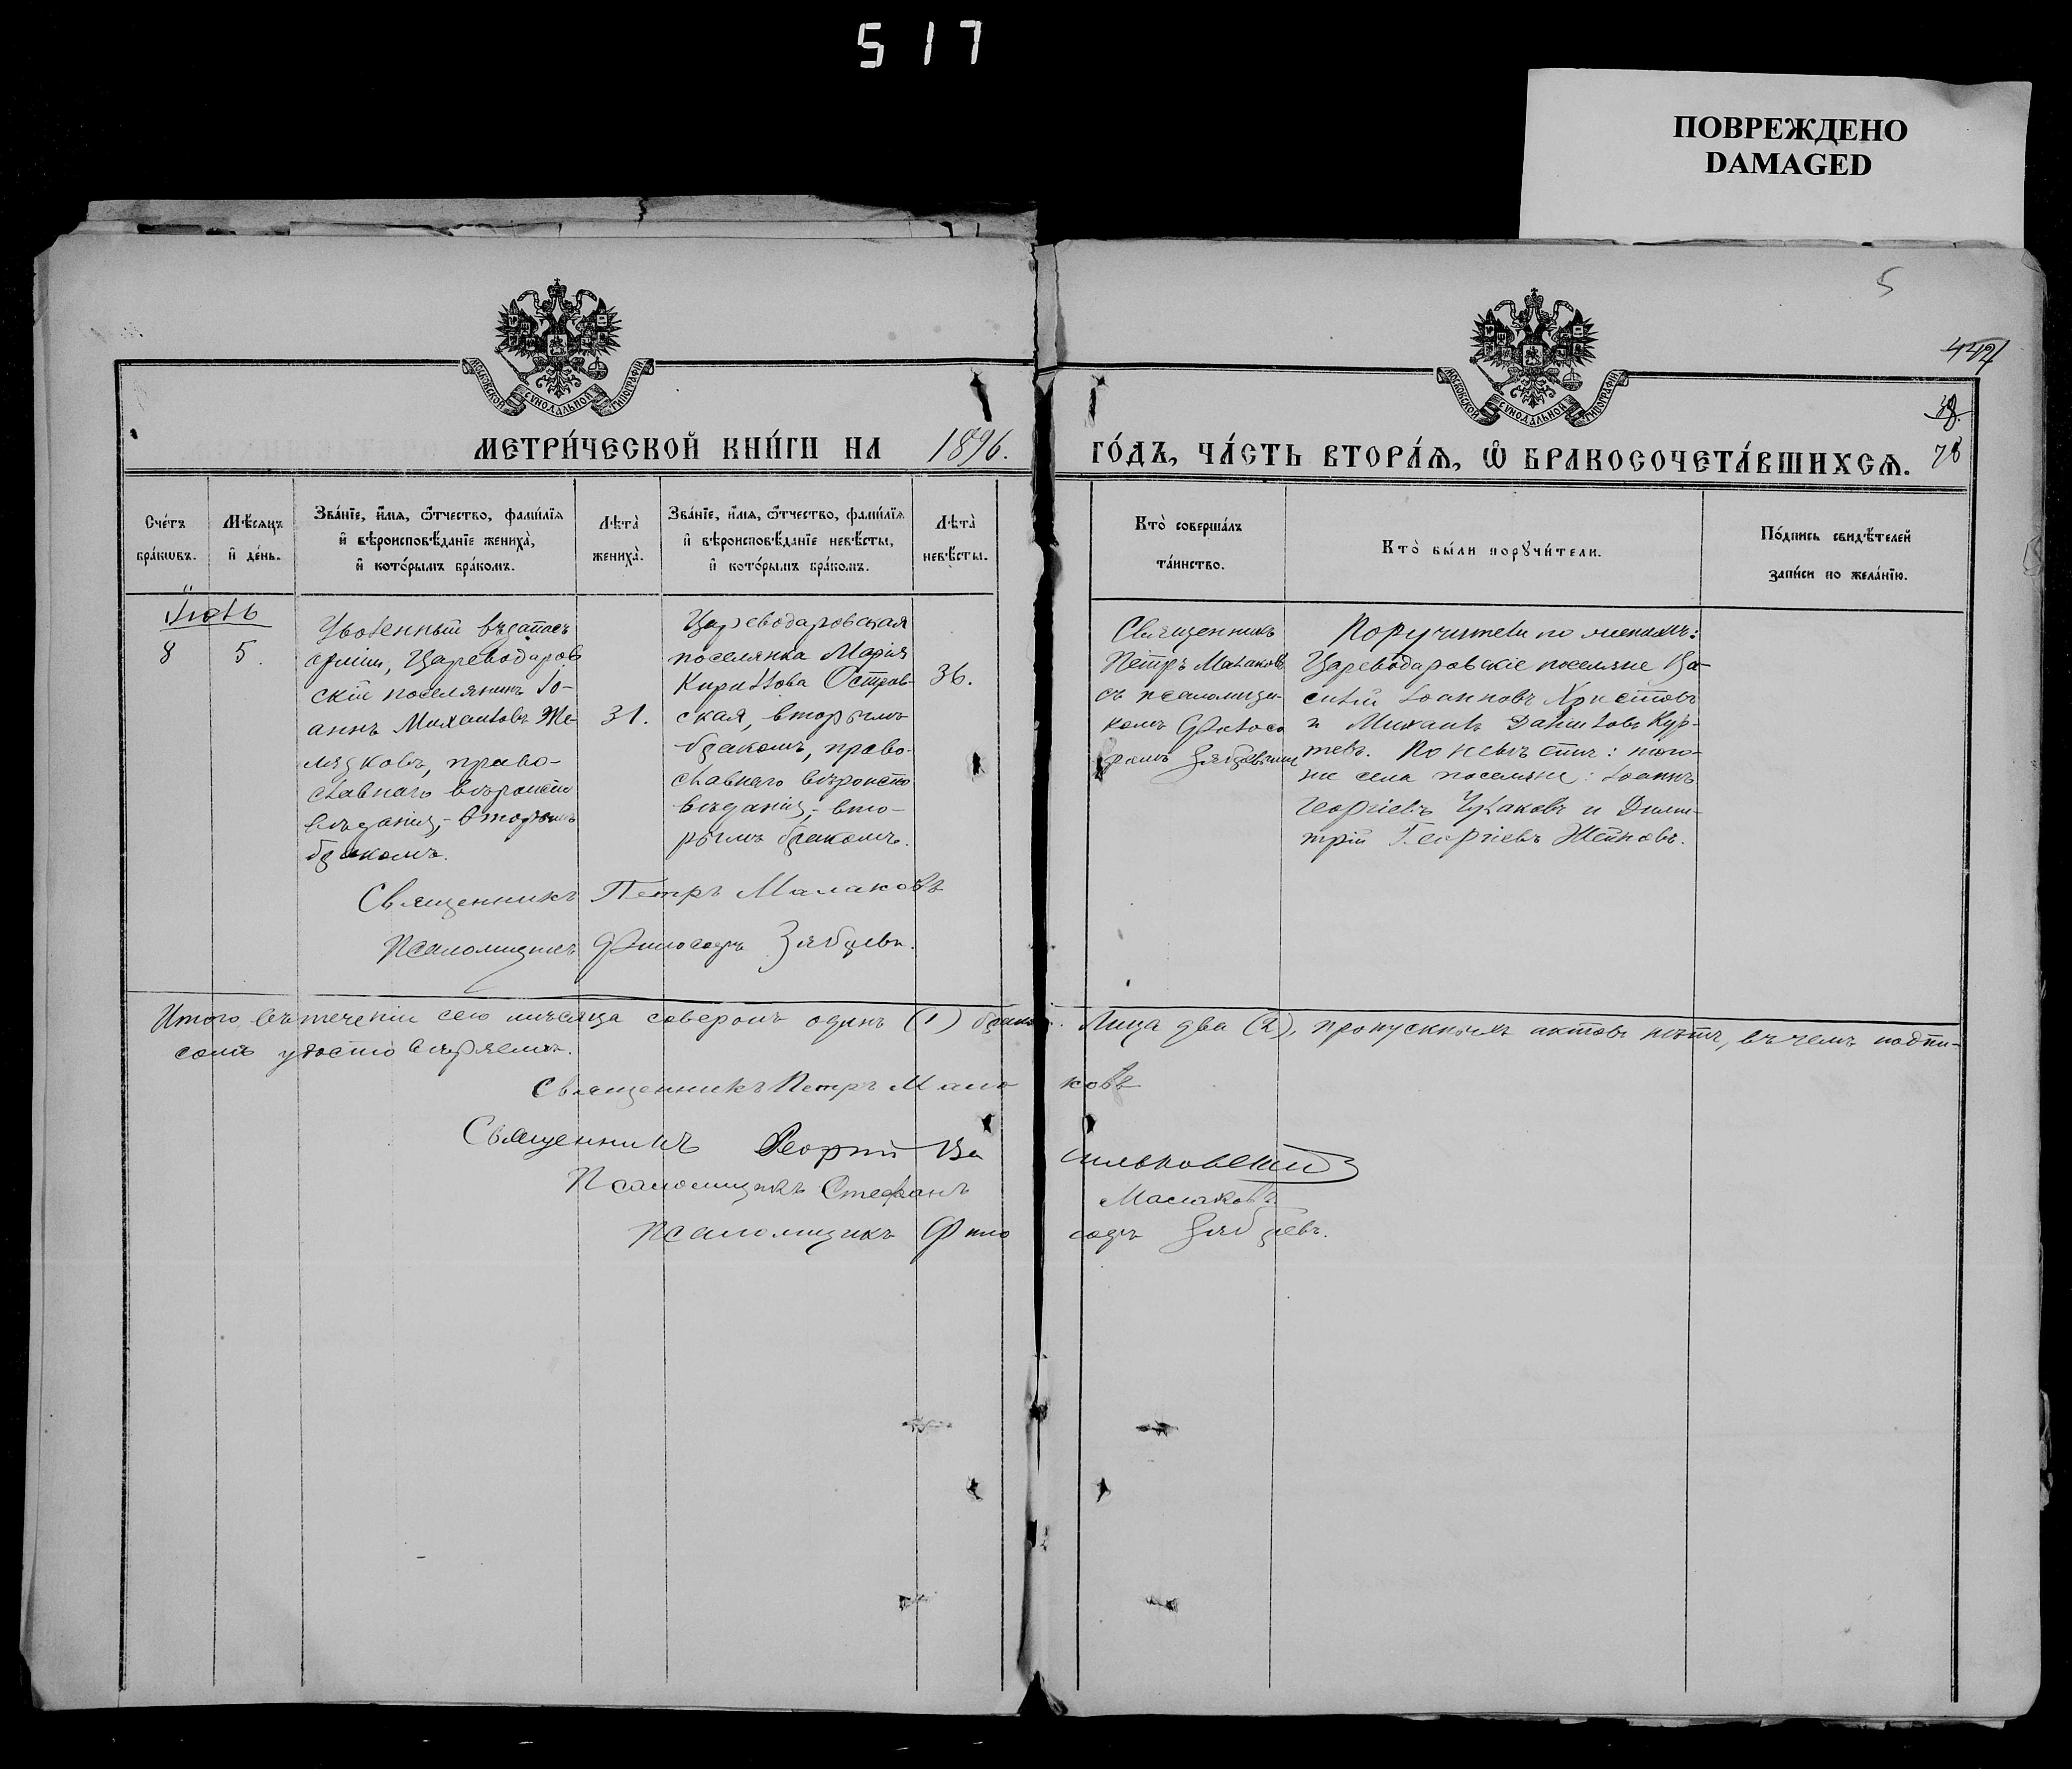 517
ПОВРЕЖДЕНО
DAMAGED
5
447
78
МОСКОВСКОЙ СУНОДАЛЬНОЙ ТИПОГРАФІИ
МОСКОВСКОЙ СУНОДАЛЬНОЙ ТИПОГРАФІИ
МЕТРИ́ЧЕСКОЙ КНИ́ГИ НА 1896. ГО́ДЪ, ЧА́СТЬ ВТОРА́Ѧ, Ѡ҆ БРАКОСОЧЕТА́ВШИХСѦ.
Сче́тъ бра́кѡвъ.
Мѣ́сѧцъ и҆ де́нь.
Зва́нїе, и҆́мѧ, ѻ҆́тчество, фами́лїѧ
и҆ вѣроисповѣ́данїе жениха̀,
и҆ кото́рымъ бра́комъ.
Лѣта̀ жениха̀.
Зва́нїе, и҆́мѧ, ѻ҆́тчество, фами́лїѧ
и҆ вѣроисповѣ́данїе невѣ́сты,
и҆ кото́рымъ бра́комъ.
Лѣта̀ невѣ́сты.
Кто̀ соверша́лъ
та́инство.
Кто̀ бы́ли порꙋчи́тели.
По́дпись свидѣ́телей
за́писи по жела́нїю.
Іюль
8
5.
Уволенный въ запасъ
арміи, Цареводаров
скій поселянинъ Іо-
аннъ Михаиловъ Же-
лязковъ, право-
славнаго вѣроиспо
вѣданія, - вторымъ
бракомъ.
31.
Цареводаровская
поселянка Марія
Кириллова Остров-
ская, вторымъ
бракомъ, право-
славнаго вѣроиспо
вѣданія, - вто-
рымъ бракомъ.
36.
Священникъ
Петръ Малаковъ
съ псаломщи-
комъ Филосо
фомъ Зябцевымъ
Поручители по женихѣ:
Цареводаровскіе поселяне Ва-
силій Іоанновъ Христовъ
и Михаилъ Даниловъ Кур-
тевъ. По невѣстѣ: того-
же села поселяне: Іоаннъ
Георгіевъ Чулаковъ и Дими-
трій Георгіевъ Жейновъ.
Священникъ Петръ Малаковъ
Псаломщикъ Философъ Зябцевъ.
Итого въ теченіи сего мѣсяца соверш. одинъ (1) бракъ. Лица два (2), пропускныхъ актовъ нѣтъ, въ чемъ подпи-
сомъ удостовѣряемъ.
Священникъ Петръ Малаковъ
Священникъ Георгій Васильковскій
Псаломщикъ Стефанъ Маслаковъ
Псаломщикъ Философъ Зябцевъ.